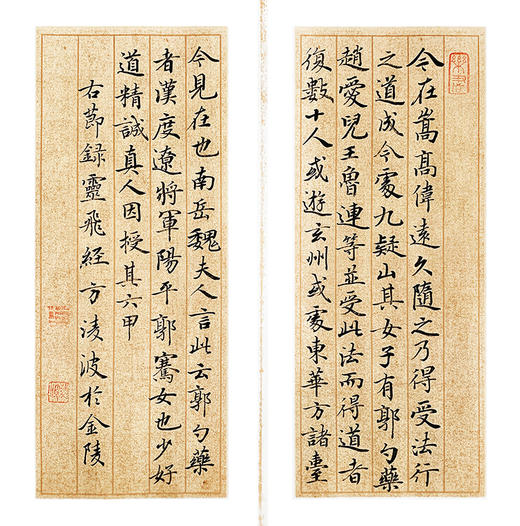 令在嵩高偉遠久隨之乃得受法行
之道成今處九疑山其女子有郭勺藥
趙愛兒王魯連等並受此法而得道者
復數十人或遊玄州或處東華方諸臺
今見在也南岳魏夫人言此云郭勺藥
者漢度遼將軍陽平郭騫女也少好
道精誠真人因授其六甲
右節録靈飛經方淩波於金陵